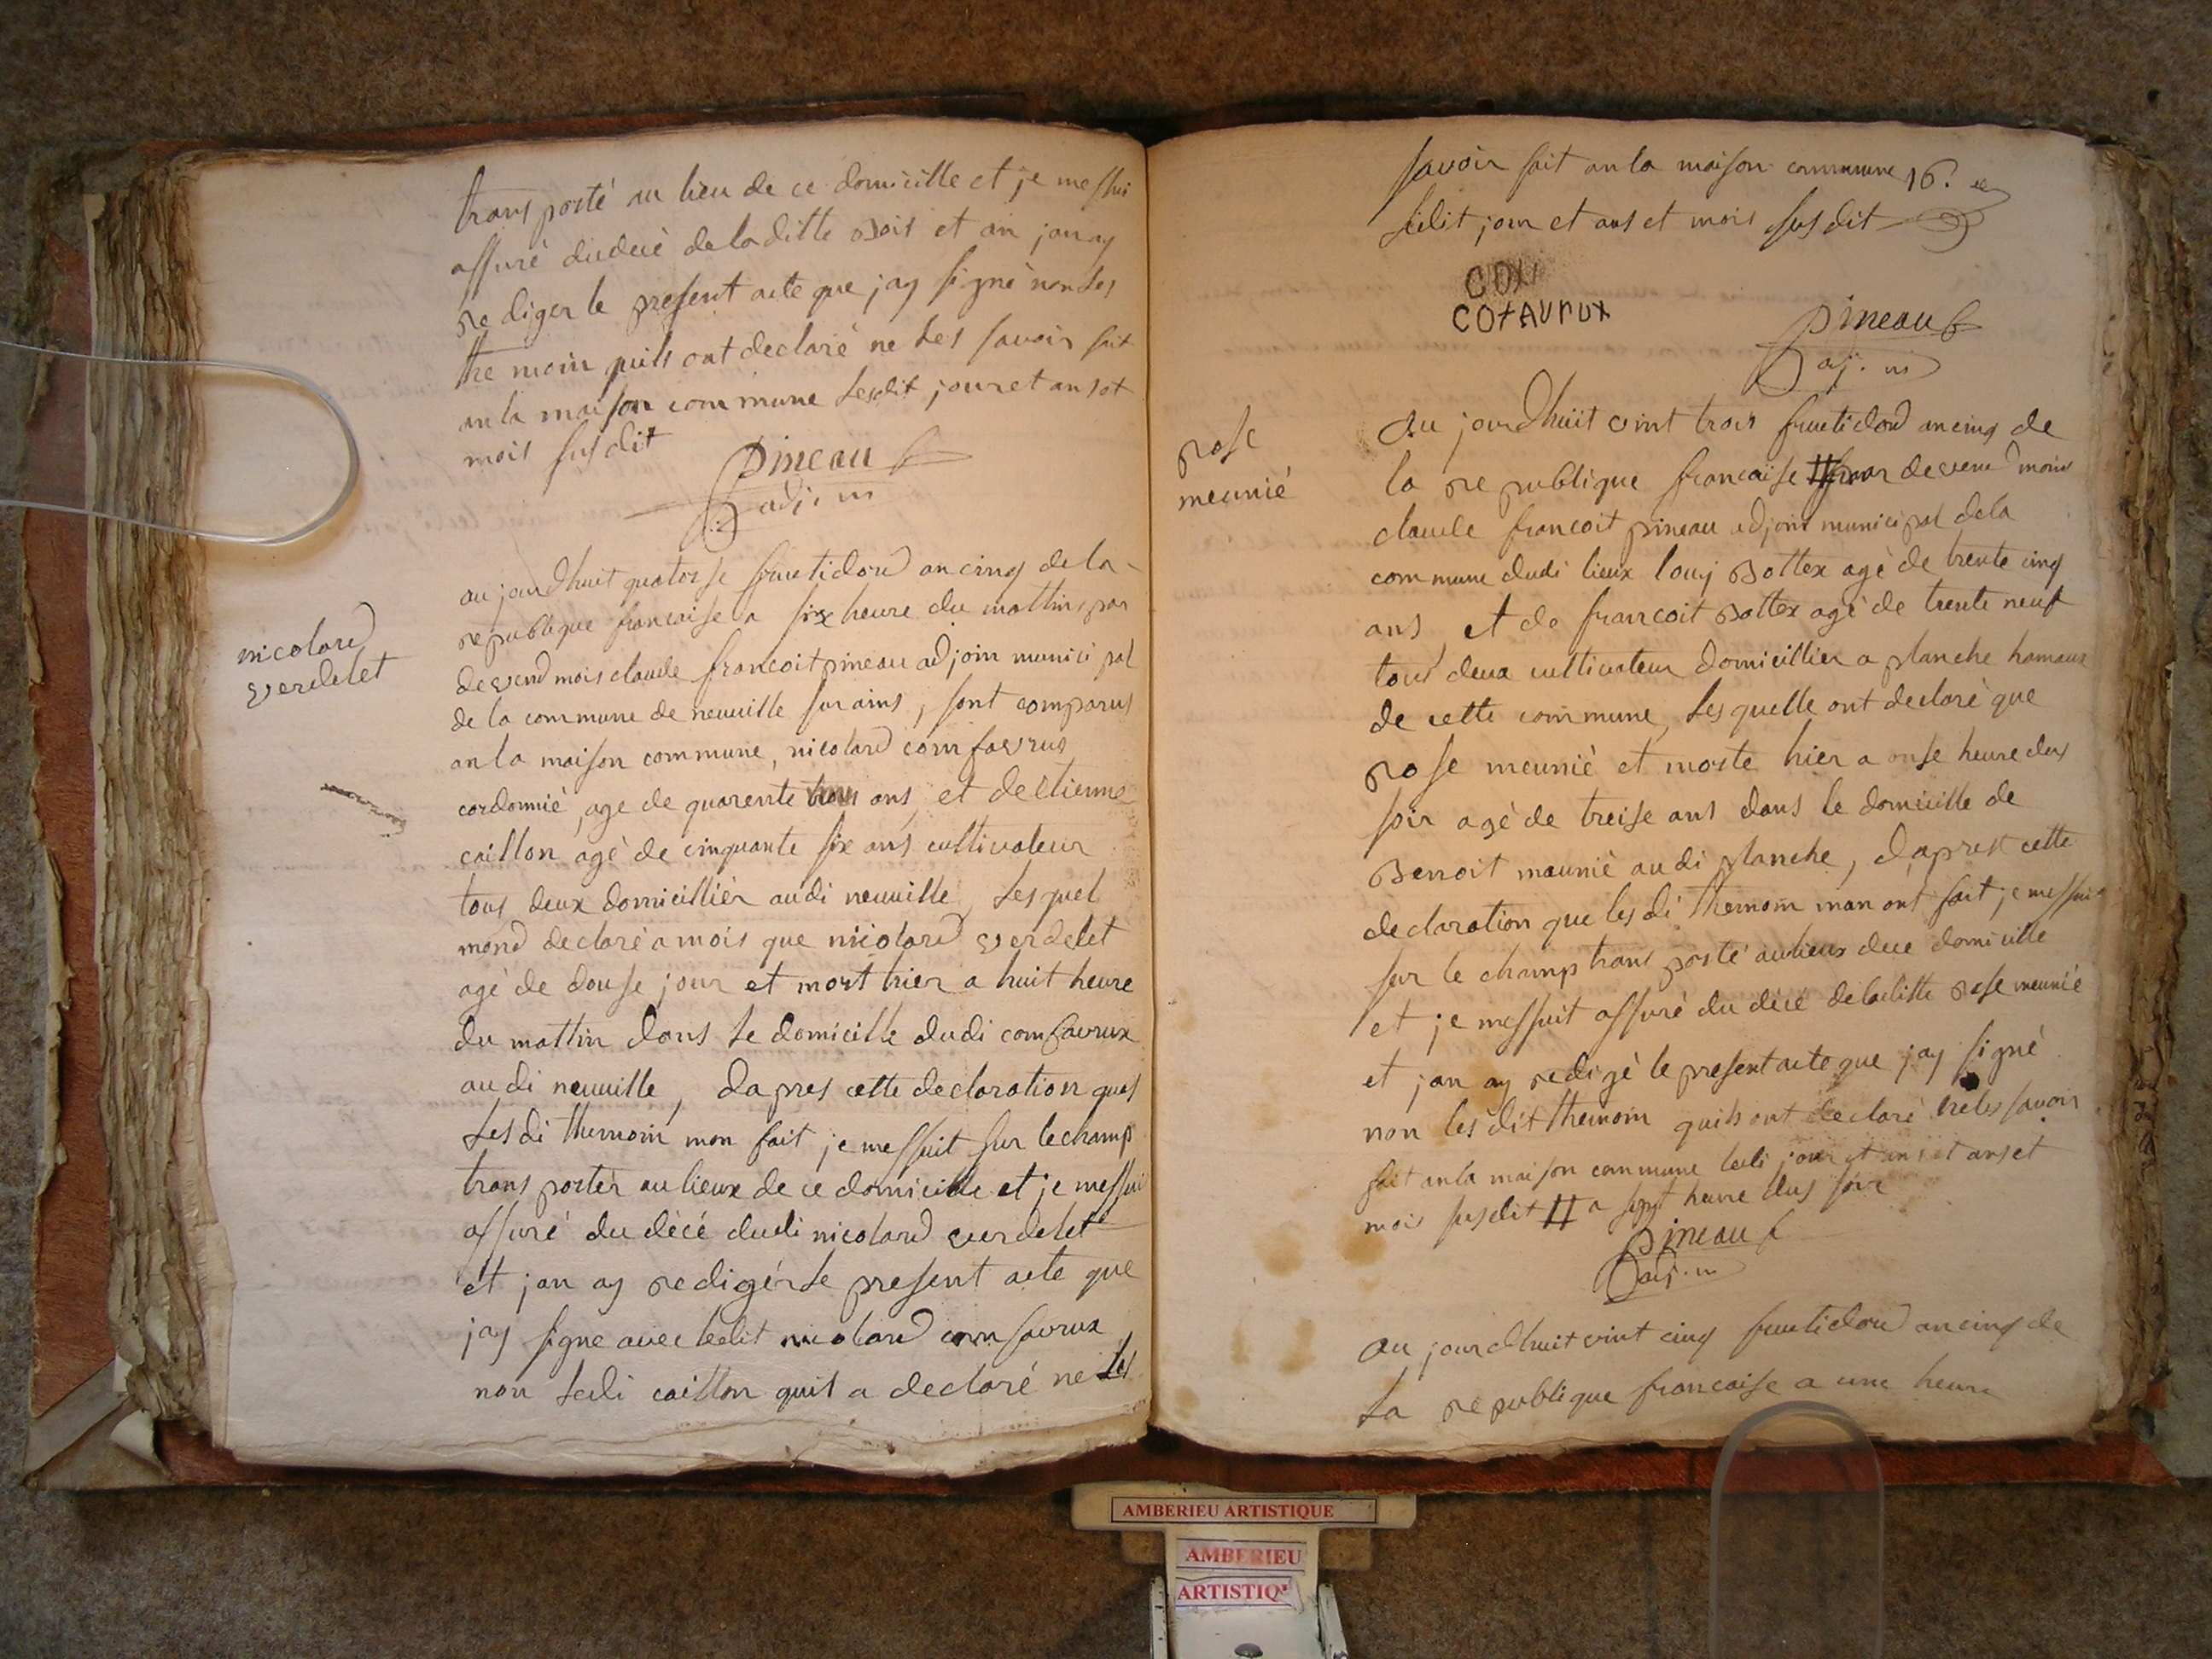 trans porté au lieu de ce domicille et je me ssui
assuré du décé de la ditte et an jan ay
re diger le present acte que jay signé non les
the moin quils ont declaré ne les savoir fait
an la maison commune lesdit jour et an et
mois susdit
pineau
adj. m
nicolard
verdelet
au jourdhuit quatorse fructidord an cinq de la
republique francaise a six heure du mattins par
devend mois claude francoit pineau adjoin munici pal
de la commune de neuville sur ains, sont comparus
an la maison commune, nicolard comfavrus
cordonnié, age de quarente trois ans, et de etienne
caillon agé de cinquante six ans cultivateur
tous deux domicilliér audi neuville, Les quel
mond declaré a mois que nicolard verdelet
agé de douse jour et mort hier a huit heure
du mattin dans le domicille dudi comfavrux
au di neuville, dapres cette declaration ques
Les di themoin mon fait je messuit sur le champ
trans portér au lieux de ce domicille et je messui
assuré du décé dudi nicolard verdelet
et jan ay redigér le present acte que
jay signe avec ledit nicolard comfavrux
non ledi caillon quil a declaré ne les
savoir fait an la maison commune 16.
ledit jour et ans et mois susdit
COU
COFAVRUX
pineau
adj. m
rose
meunié
Au jourdhuit vint trois fructidord an cinq de
la republique francaise # par devend mois
claude francoit pineau adjoint municipal de la
commune dudi lieux louy Bottex agé de trente cinq
ans, et de francoit Bottex agé de trente neuf
tous deux cultivateur domicillier a planche hamaux
de cette commune, Les quelle ont declaré que
rose meunié et morte hier a onse heure dus
soir agé de treise ans dans le domicille de
Benoit meunié au di planche, dapres cette
declaration que les di themoin man ont fait je messuit
sur le champ trans porté au lieux de ce domicille
et je messuit assuré du décé de la ditte rose meunié
et jan ay redigé le present acte que jay signé
non les dit themoin quils ont declaré ne les savoir
fait an la maison commune ledi jour et an et ans et
mois susdit # a sept heure dus soir
pineau
adj. m
au jourdhuit vint cinq fructidord an cinq de
La republique francaise a une heure
AMBERIEU ARTISTIQUE
AMBERIEU
ARTISTIQ